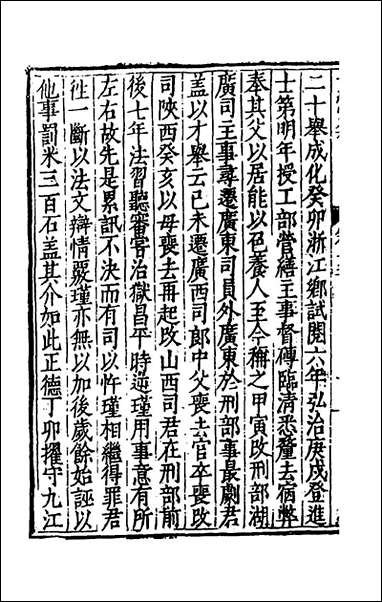 二十舉成化癸卯浙江鄉試閱六年弘治庚戌登進
士第明年授工部營繕主事督磚臨清悉釐去宿弊
奉其父以居能以色養人至今稱之甲寅改刑部湖
廣司主事尋遷廣東司員外廣東於刑部事最劇君
盖以才舉云己未遷廣西司郎中父喪去官卒喪改
司陝西癸亥以母喪去再起改山西司君在刑部前
後七年法習聽審寄治獄昌平時逆瑾用事意有所
左右故先是累訊不決而有司以忤瑾相繼得罪君
徃一斷以法文辯情嚴瑾亦無以加後歲餘始誣以
他事罰米三百石盖其介如此正德丁卯擢守九江